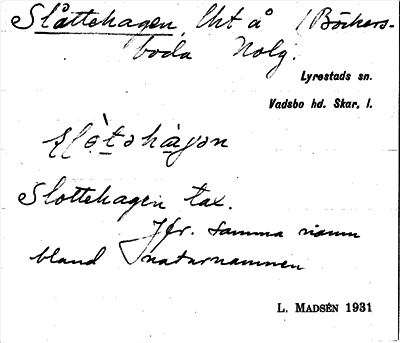 Slåttehagen, lht å Böckers-
boda Nolg.
Lyrestads sn.
Vadsbo hd. Skar. l.
slò̀tahàgən
Slottehagen tax.
Jfr. samma namn
bland naturnamnen
L. Madsén 1931